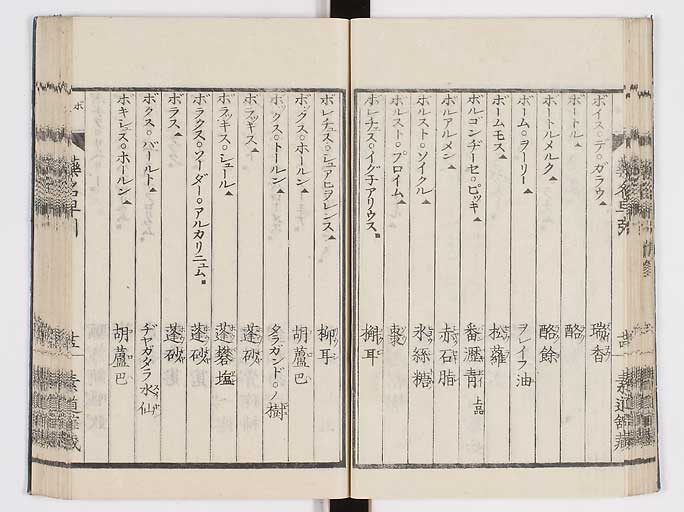 ボイス。デ。ガラウ▲ 瑞香
ボートル▲ 酪
ボートルメルク▲ 酪餘
ボーム。ヲーリー▲ ヲレイフ油
ボームモス▲ 松蘿
ボルゴンヂーセ。ピッキ▲ 番瀝青 上品
ボルアルメン▲ 赤石脂
ボルスト。ソイクル▲ 氷糖
ボルスト。プロイム▲ 棗
ボレチュス。イグ子アリウス■ 槲耳
ボレチュス。シュアヒヲレンス▲ 柳耳
ボックス。ホールン▲ 胡蘆巴
ボックス。トールン▲ タラガンド。ノ樹
ボラッキス▲ 蓬砂
ボラッキス。シュール▲ 蓬礬塩
ボラクス。ソーダー。アルカリニュム■ 蓬砂
ボラス▲ 蓬砂
ボクス。バールト▲ ヂヤガタラ水仙
ボキシュス。ホールン▲ 胡蘆巴